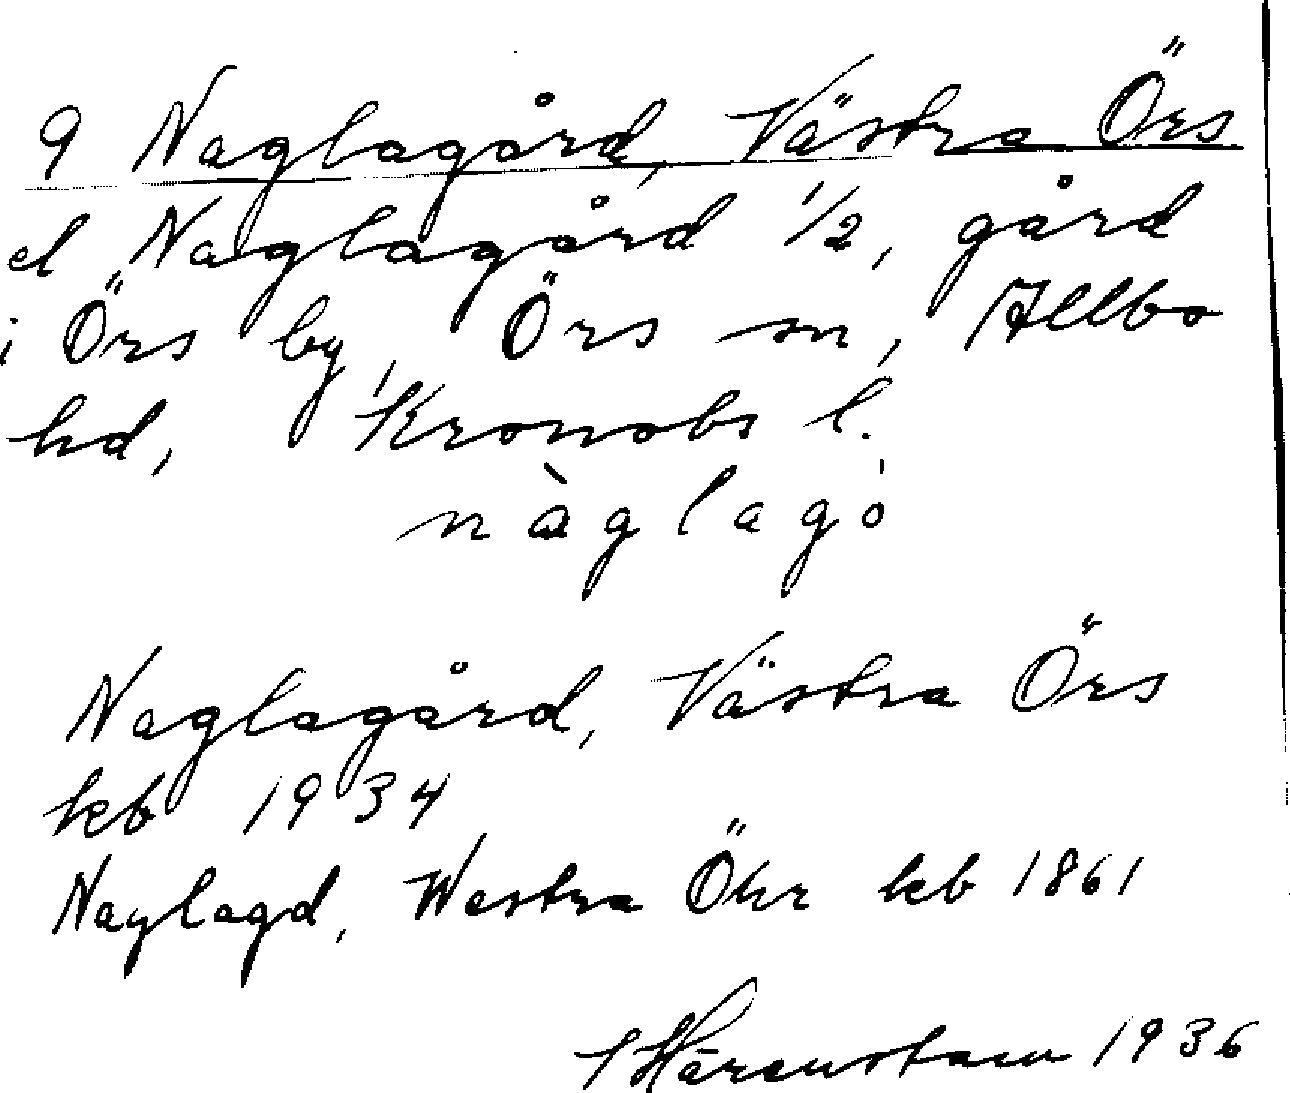 9 Naglagård, Västra Örs
el Naglagård 1/2, gård
i Örs by, Örs sn, Allbo
hd, Kronobs l.
nàglagó
Naglagård, Västra Örs
kb 1934
Naglagd, Westra Öhr kb 1861
Härenstam 1936